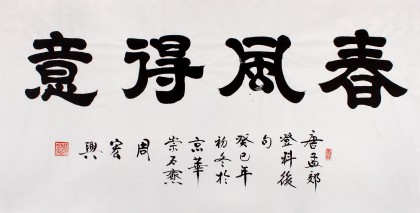 春風得意
唐孟郊
登科後
句
癸巳年
初冬於
京華
崇石
周
宏
興